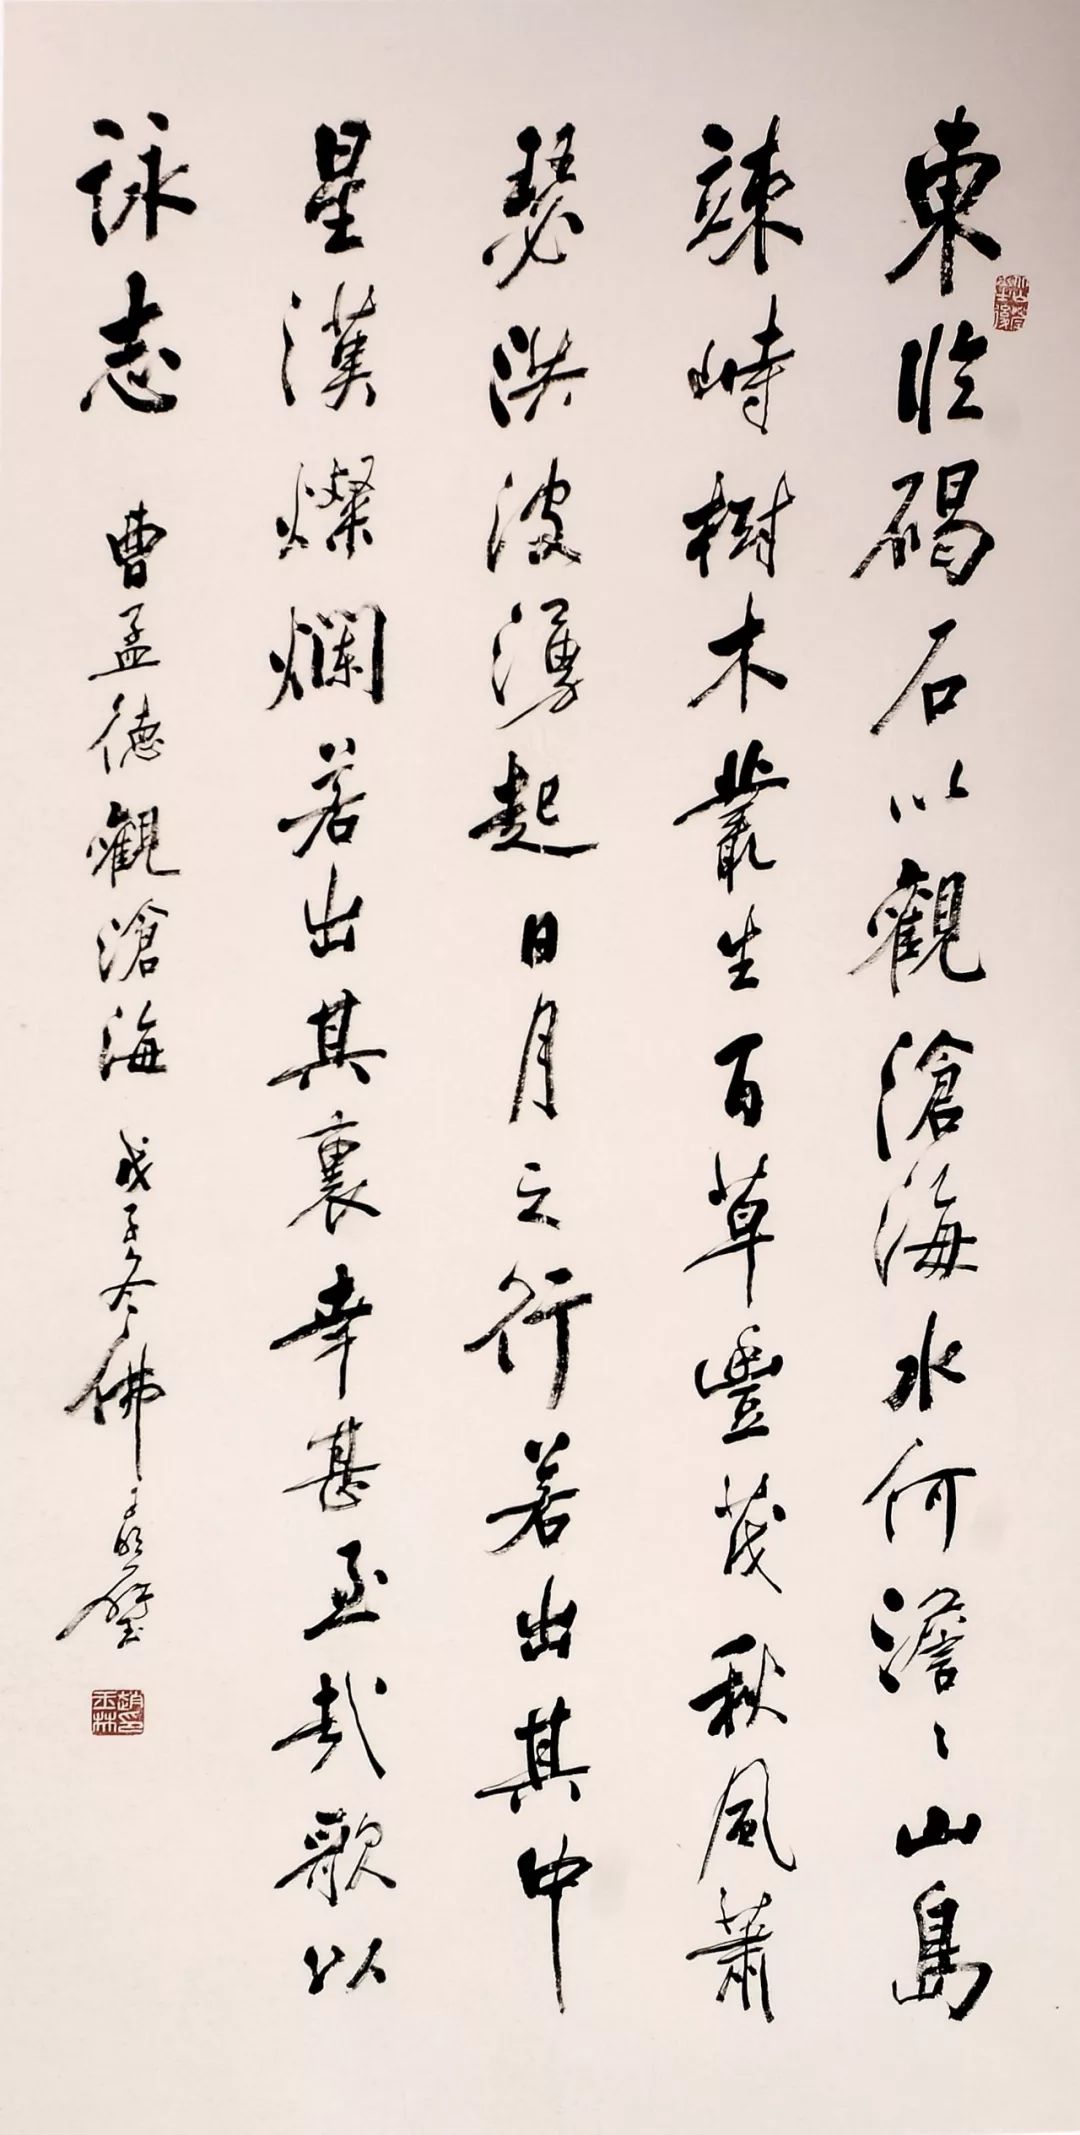 東臨碣石以觀滄海水何澹々山島
竦峙樹木叢生百草豐茂秋風蕭
瑟洪波湧起日月之行若出其中
星漢燦爛若出其裏幸甚至哉歌以
詠志 曹孟德觀滄海 戊子冬佛
趙印玉林